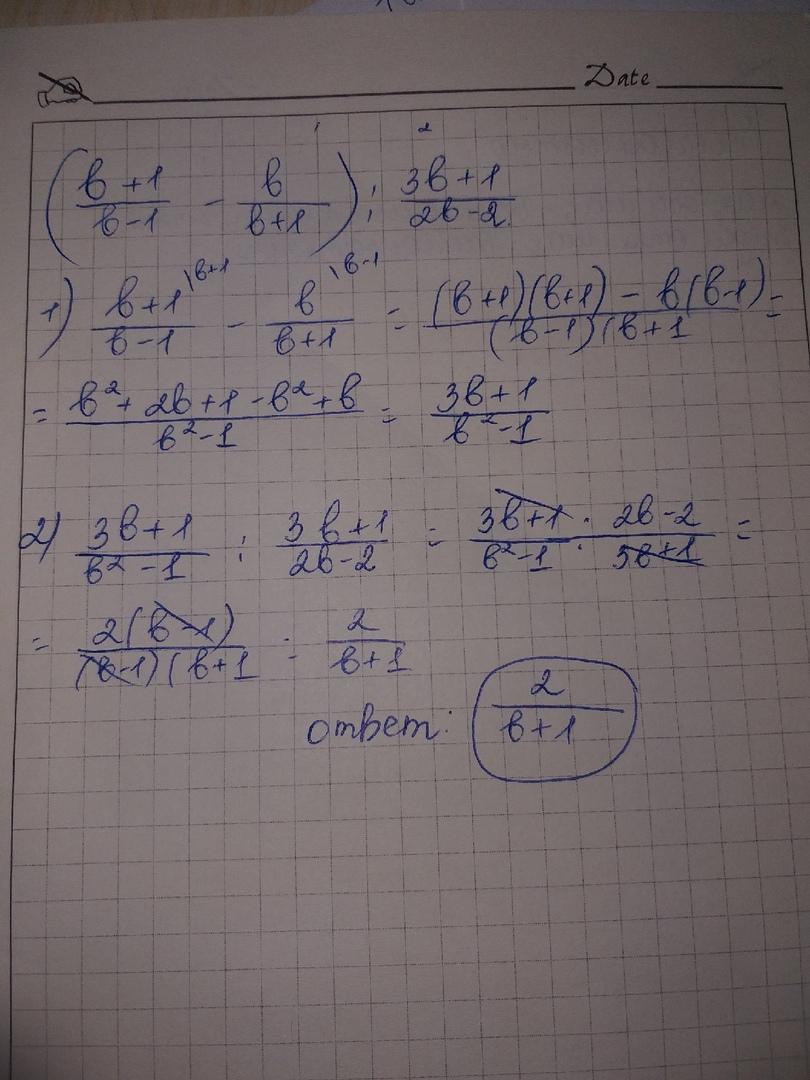 Date
1 2
(b+1/b-1 - b/b+1) : 3b+1/2b-2
1) b+1/b-1 \b+1 - b/b+1 \b-1 = (b+1)(b+1) - b(b-1)/(b-1)(b+1 =
= b²+2b+1-b²+b/b²-1 = 3b+1/b²-1
2) 3b+1/b²-1 : 3b+1/2b-2 = 3b+1/b²-1 · 2b-2/3b+1 =
= 2(b-1)/(b-1)(b+1 = 2/b+1
ответ: 2/b+1